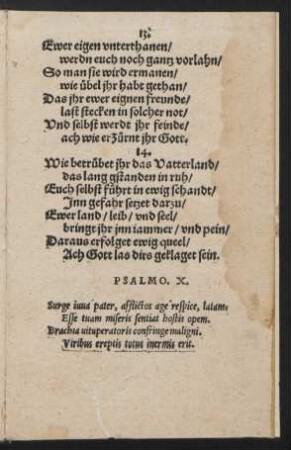 13.
Ewer eigen vnterthanen/
werdn euch noch gantz vorlahn/
So man sie wird ermanen/
wie übel jhr habt gethan/
Das jhr ewer eignen freunde/
last stecken in solcher not/
Vnd selbst werdt jhr feinde/
ach wie erzürnt jhr Gott.
14.
Wie betrübet jhr das Vatterland/
das lang gstanden in ruh/
Euch selbst führt in ewig schandt/
Inn gefahr setzet darzu/
Ewer land/ leib/ vnd seel/
bringt jhr jnn iammer/ vnd pein/
Daraus erfolget ewig queel/
Ach Gott las dirs geklaget sein.
PSALMO. X.
Surge iuua pater, afflictos age respice, latam
Esse tuam miseris sentiat hostis opem.
Brachia uituperatoris confringe maligni.
Viribus ereptis totus inermis erit.